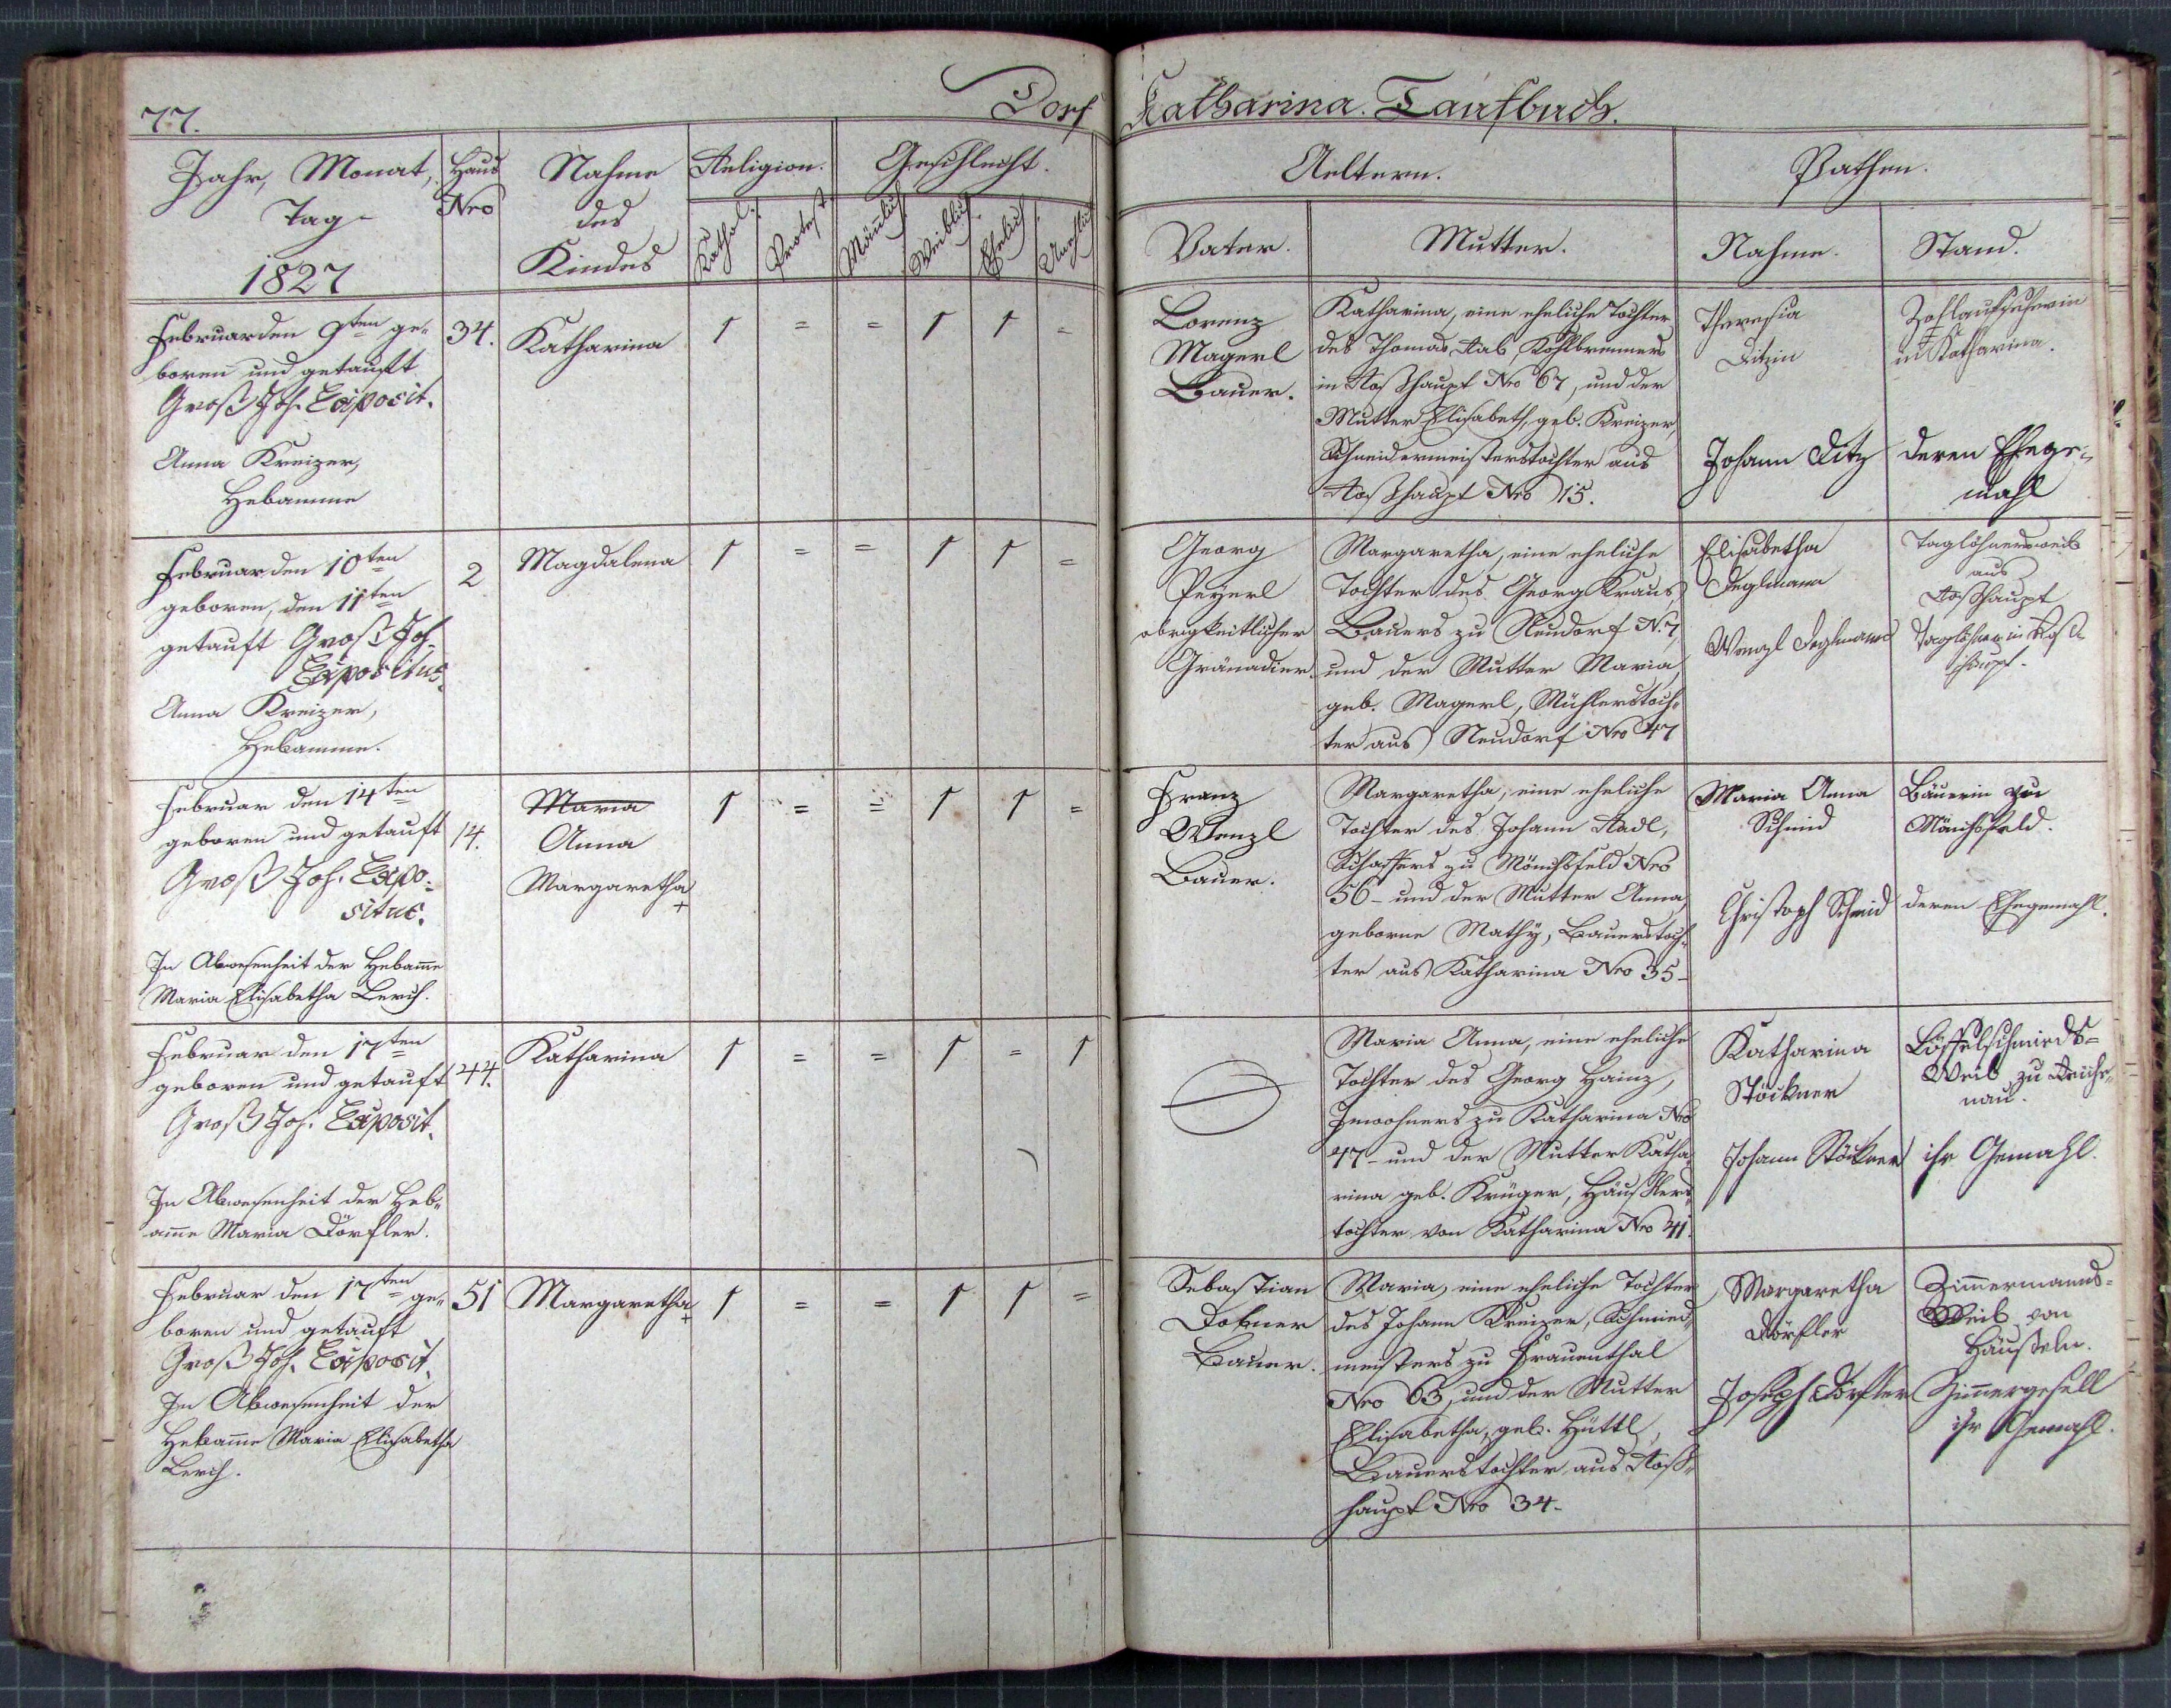 77.
Dorf Katharina. Taufbuch.
Jahr, Monat,
Tag
1827
Haus
Nro
Nahme
des
Kindes
Religion.
Kathol.
Protest.
Geschlecht.
Mäñlich
Weiblich
Ehelich
Unehlich
Aeltern.
Vater.
Mutter.
Pathen.
Nahme.
Stand.
Februar den 9ten ge-
boren und getauft
Groß Joh. Exposit.
Anna Kreizer,
Hebamme
34.
Katharina
1 = = 1 1 =
Lorenz
Magerl
Bauer.
Katharina, eine eheliche Tochter
des Thomas Aab Kohlbrenners
in Roßhaupt Nro 67, und der
Mutter Elisabeth, geb. Kreizer,
Schneidermeisterstochter aus
Roßhaupt Nro 15.
Theresia
Ditzin
Zollaufseherin
in Katharina.
Johann Ditz
deren Ehege-
mahl
Februar den 10ten
geboren, den 11ten
getauft Groß Joh.
Expositus.
Anna Kreizer,
Hebamme.
2
Magdalena
1 = = 1 1 =
Georg
Peÿerl
obrigkeitlicher
Gränadier
Margaretha, eine eheliche
Tochter des Georg Kraus,
Bauers zu Neudorf N. 7,
und der Mutter Maria
geb. Magerl, Müllerstoch-
ter aus Neudorf Nro 47
Elisabetha
Deglmann
Taglöhnersweib
aus
Roßhaupt
Wenzl Deglmann
Taglöhner in Roß-
haupt.
Februar den 14ten
geboren und getauft
Groß Joh. Expo-
situs.
In Abwesenheit der Hebam̄e
Maria Elisabetha Lerch.
14.
Maria
Anna
Margaretha
+
1 = = 1 1 =
Franz
Wenzl
Bauer.
Margaretha, eine eheliche
Tochter des Johann Aadl,
Schaffers zu Mönchsfeld Nro
56 - und der Mutter Anna
geborne Mathÿ, Bauerstoch-
ter aus Katharina Nro 35 -
Maria Anna
Schmid
Bäuerin zu
Mönchsfeld.
Christoph Schmid
deren Ehegemahl.
Februar den 17ten
geboren und getauft
Groß Joh. Exposit.
In Abwesenheit der Heb-
am̄e Maria Dörfler.
44.
Katharina
1 = = 1 = 1
Maria Anna, eine eheliche
Tochter des Georg Hainz,
Inwohners zu Katharina Nro
47 - und der Mutter Katha-
rina geb. Krüger, Häuslers-
tochter von Katharina Nro 41.
Katharina
Stöckner
Löffelschmieds-
Weib zu Reiche-
nau.
Johann Stöckner
ihr Gemahl.
Februar den 17ten ge-
boren und getauft
Groß Joh. Exposit.
In Abwesenheit der
Hebam̄e Maria Elisabetha
Lerch.
51
Margaretha
+
1 = = 1 1 =
Sebastian
Dobner
Bauer.
Maria, eine eheliche Tochter
des Johann Kreizer, Schmied-
meisters zu Frauenthal
Nro 63, und der Mutter
Elisabetha, geb. Hüttl,
Bauerstochter aus Roß-
haupt Nro 34.
Margaretha
Dörfler
Zim̄ermanns-
Weib von
Häuseln.
Joseph Dörfler
Zim̄ergesell
ihr Gemahl.